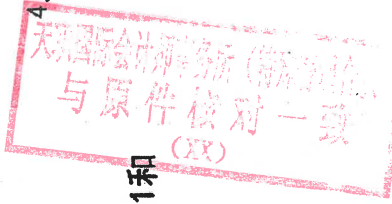 4、
天职国际会计师事务所（特殊普通合伙）
与原件核对一致
(IX)
1和